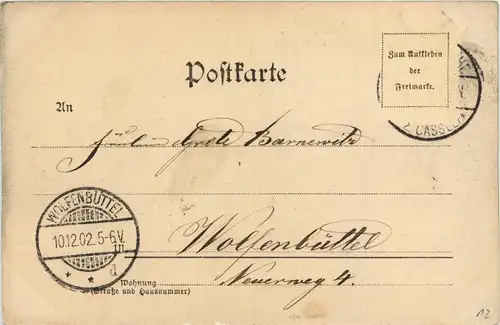 Postkarte
Zum Aufkleben
der
Freimarke.
An
Fräulein Grete Barnewitz
CASSEL
WOLFENBÜTTEL
10.12.02.5-6.V.
* * d
in
Wolfenbüttel
Wohnung
(Straße und Hausnummer)
Neuerweg 4.
12